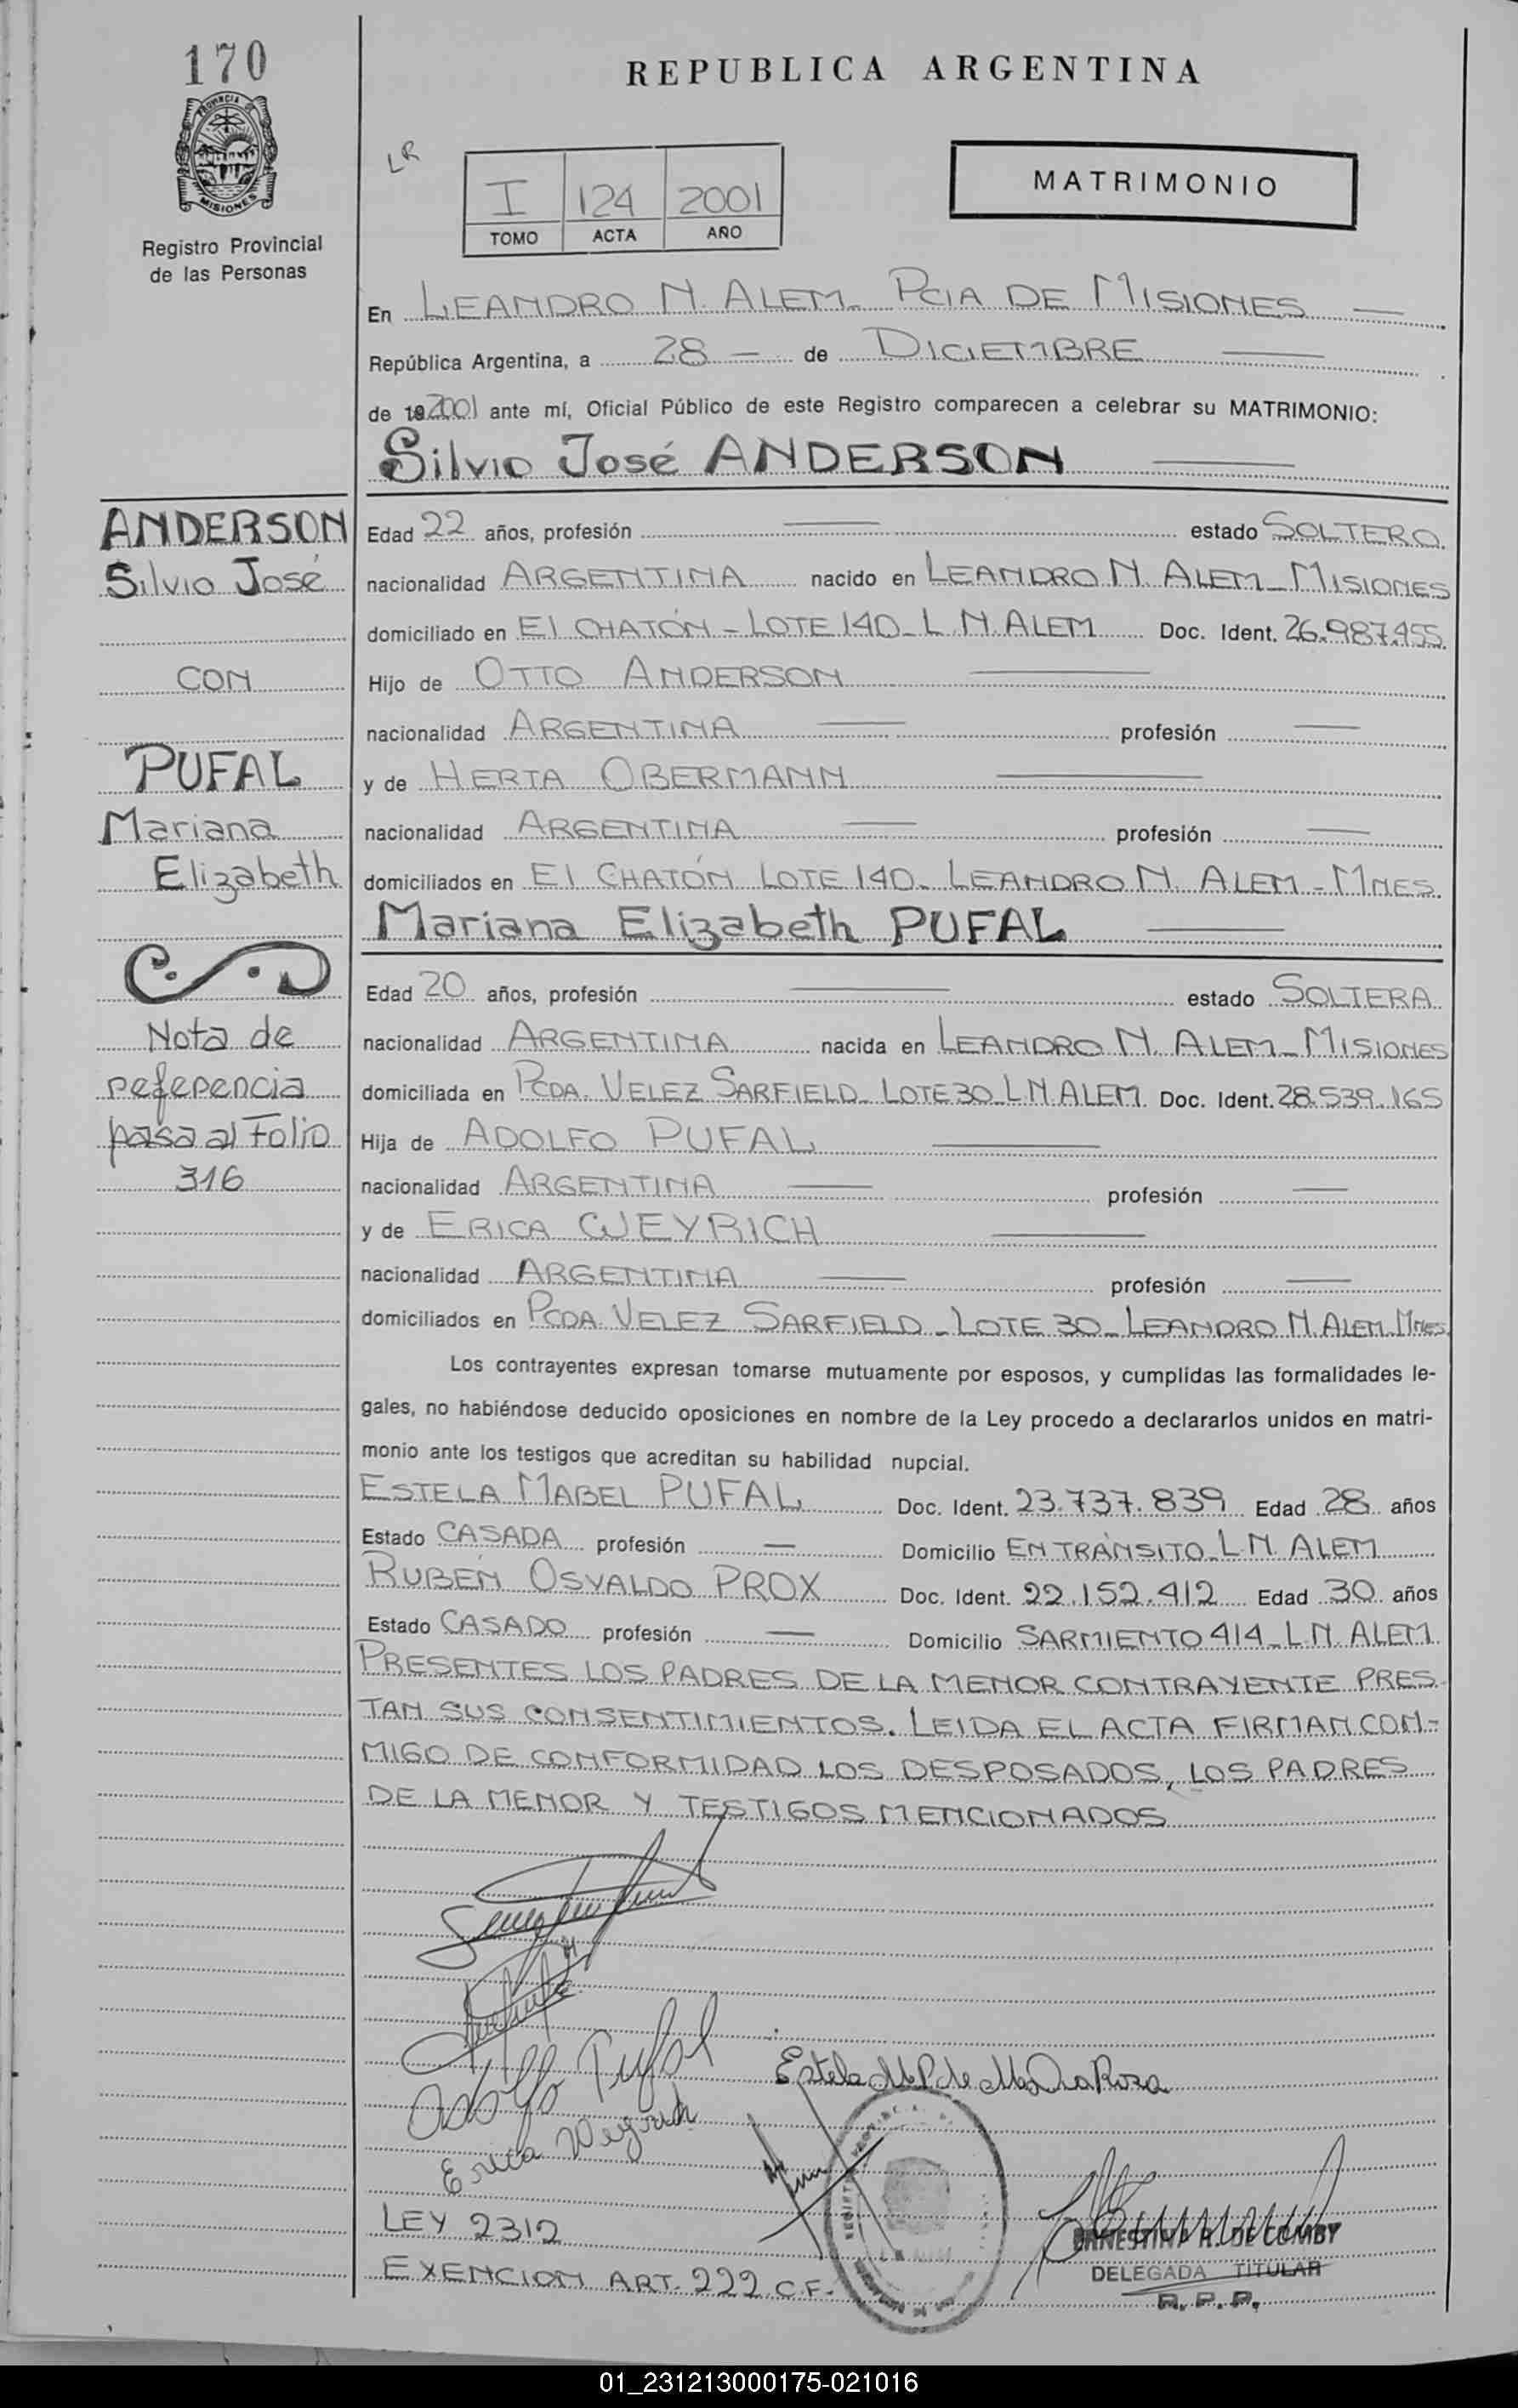 170
REPUBLICA ARGENTINA
PROVINCIA
MISIONES
Registro Provincial
de las Personas
LR
I 124 2001
TOMO ACTA AÑO
MATRIMONIO
En LEANDRO N. ALEM - PCIA DE MISIONES
República Argentina, a 28 - de DICIEMBRE
de 19 2001 ante mí, Oficial Público de este Registro comparecen a celebrar su MATRIMONIO:
Silvio José ANDERSON
ANDERSON
Silvio José
CON
PUFAL
Mariana
Elizabeth
Nota de
referencia
pasa al Folio
316
Edad 22 años, profesión — estado SOLTERO
nacionalidad ARGENTINA nacido en LEANDRO N. ALEM - MISIONES
domiciliado en El CHATÓN - LOTE 140 - L.N. ALEM Doc. Ident. 26.987.455
Hijo de OTTO ANDERSON
nacionalidad ARGENTINA — profesión —
y de HERTA OBERMANN
nacionalidad ARGENTINA — profesión —
domiciliados en El CHATÓN LOTE 140 - LEANDRO N. ALEM - MNES.
Mariana Elizabeth PUFAL
Edad 20 años, profesión — estado SOLTERA
nacionalidad ARGENTINA nacida en LEANDRO N. ALEM - MISIONES
domiciliada en PCDA. VELEZ SARFIELD - LOTE 30 - L N ALEM Doc. Ident. 28.539.165
Hija de ADOLFO PUFAL
nacionalidad ARGENTINA — profesión —
y de ERICA WEYRICH
nacionalidad ARGENTINA — profesión —
domiciliados en PCDA. VELEZ SARFIELD - LOTE 30 - LEANDRO N. ALEM. MNES.
Los contrayentes expresan tomarse mutuamente por esposos, y cumplidas las formalidades le-
gales, no habiéndose deducido oposiciones en nombre de la Ley procedo a declararlos unidos en matri-
monio ante los testigos que acreditan su habilidad nupcial.
ESTELA MABEL PUFAL Doc. Ident. 23.737.839 Edad 28 años
Estado CASADA profesión — Domicilio EN TRÁNSITO - L.N. ALEM
RUBÉN OSVALDO PROX Doc. Ident. 22.152.412 Edad 30 años
Estado CASADO profesión — Domicilio SARMIENTO 414 - L.N. ALEM
PRESENTES LOS PADRES DE LA MENOR CONTRAYENTE PRES
TAN SUS CONSENTIMIENTOS. LEIDA EL ACTA FIRMAN CON-
MIGO DE CONFORMIDAD LOS DESPOSADOS, LOS PADRES
DE LA MENOR Y TESTIGOS MENCIONADOS
Adolfo Pufal
Estela M P. de
Erica Weyrich
LEY 2312
EXENCION ART. 222 C.F.
ERNESTINA R. DE COMBY
DELEGADA TITULAR
R. P. P.
01_231213000175-021016